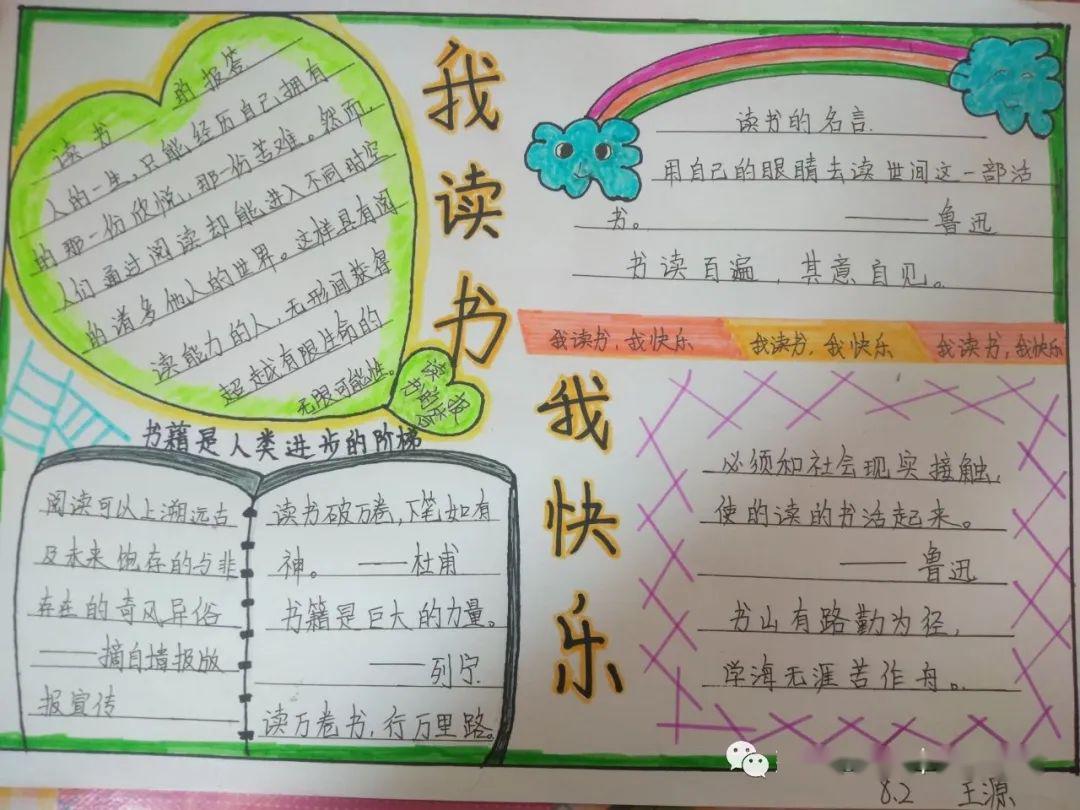 我读书
我快乐
读书 的报答
人的一生，只能经历自己拥有
的那一份欣悦，那一份苦难。然而，
人们通过阅读却能进入不同时空
的诸多他人的世界。这样具有阅
读能力的人，无形间获得
超越有限生命的
无限可能性。
书籍是人类进步的阶梯
阅读可以上溯远古
及未来 饱存的与非
存在的奇风异俗
——摘自墙报版
报宣传
读书破万卷，下笔如有
神。 ——杜甫
书籍是巨大的力量。
——列宁
读万卷书，行万里路。
读书的名言
用自己的眼睛去读世间这一部活
书。 ——鲁迅
书读百遍，其意自见。
我读书，我快乐 我读书，我快乐 我读书，我快乐
必须和社会现实接触，
使的读的书活起来。
——鲁迅
书山有路勤为径，
学海无涯苦作舟。
8.2 王源